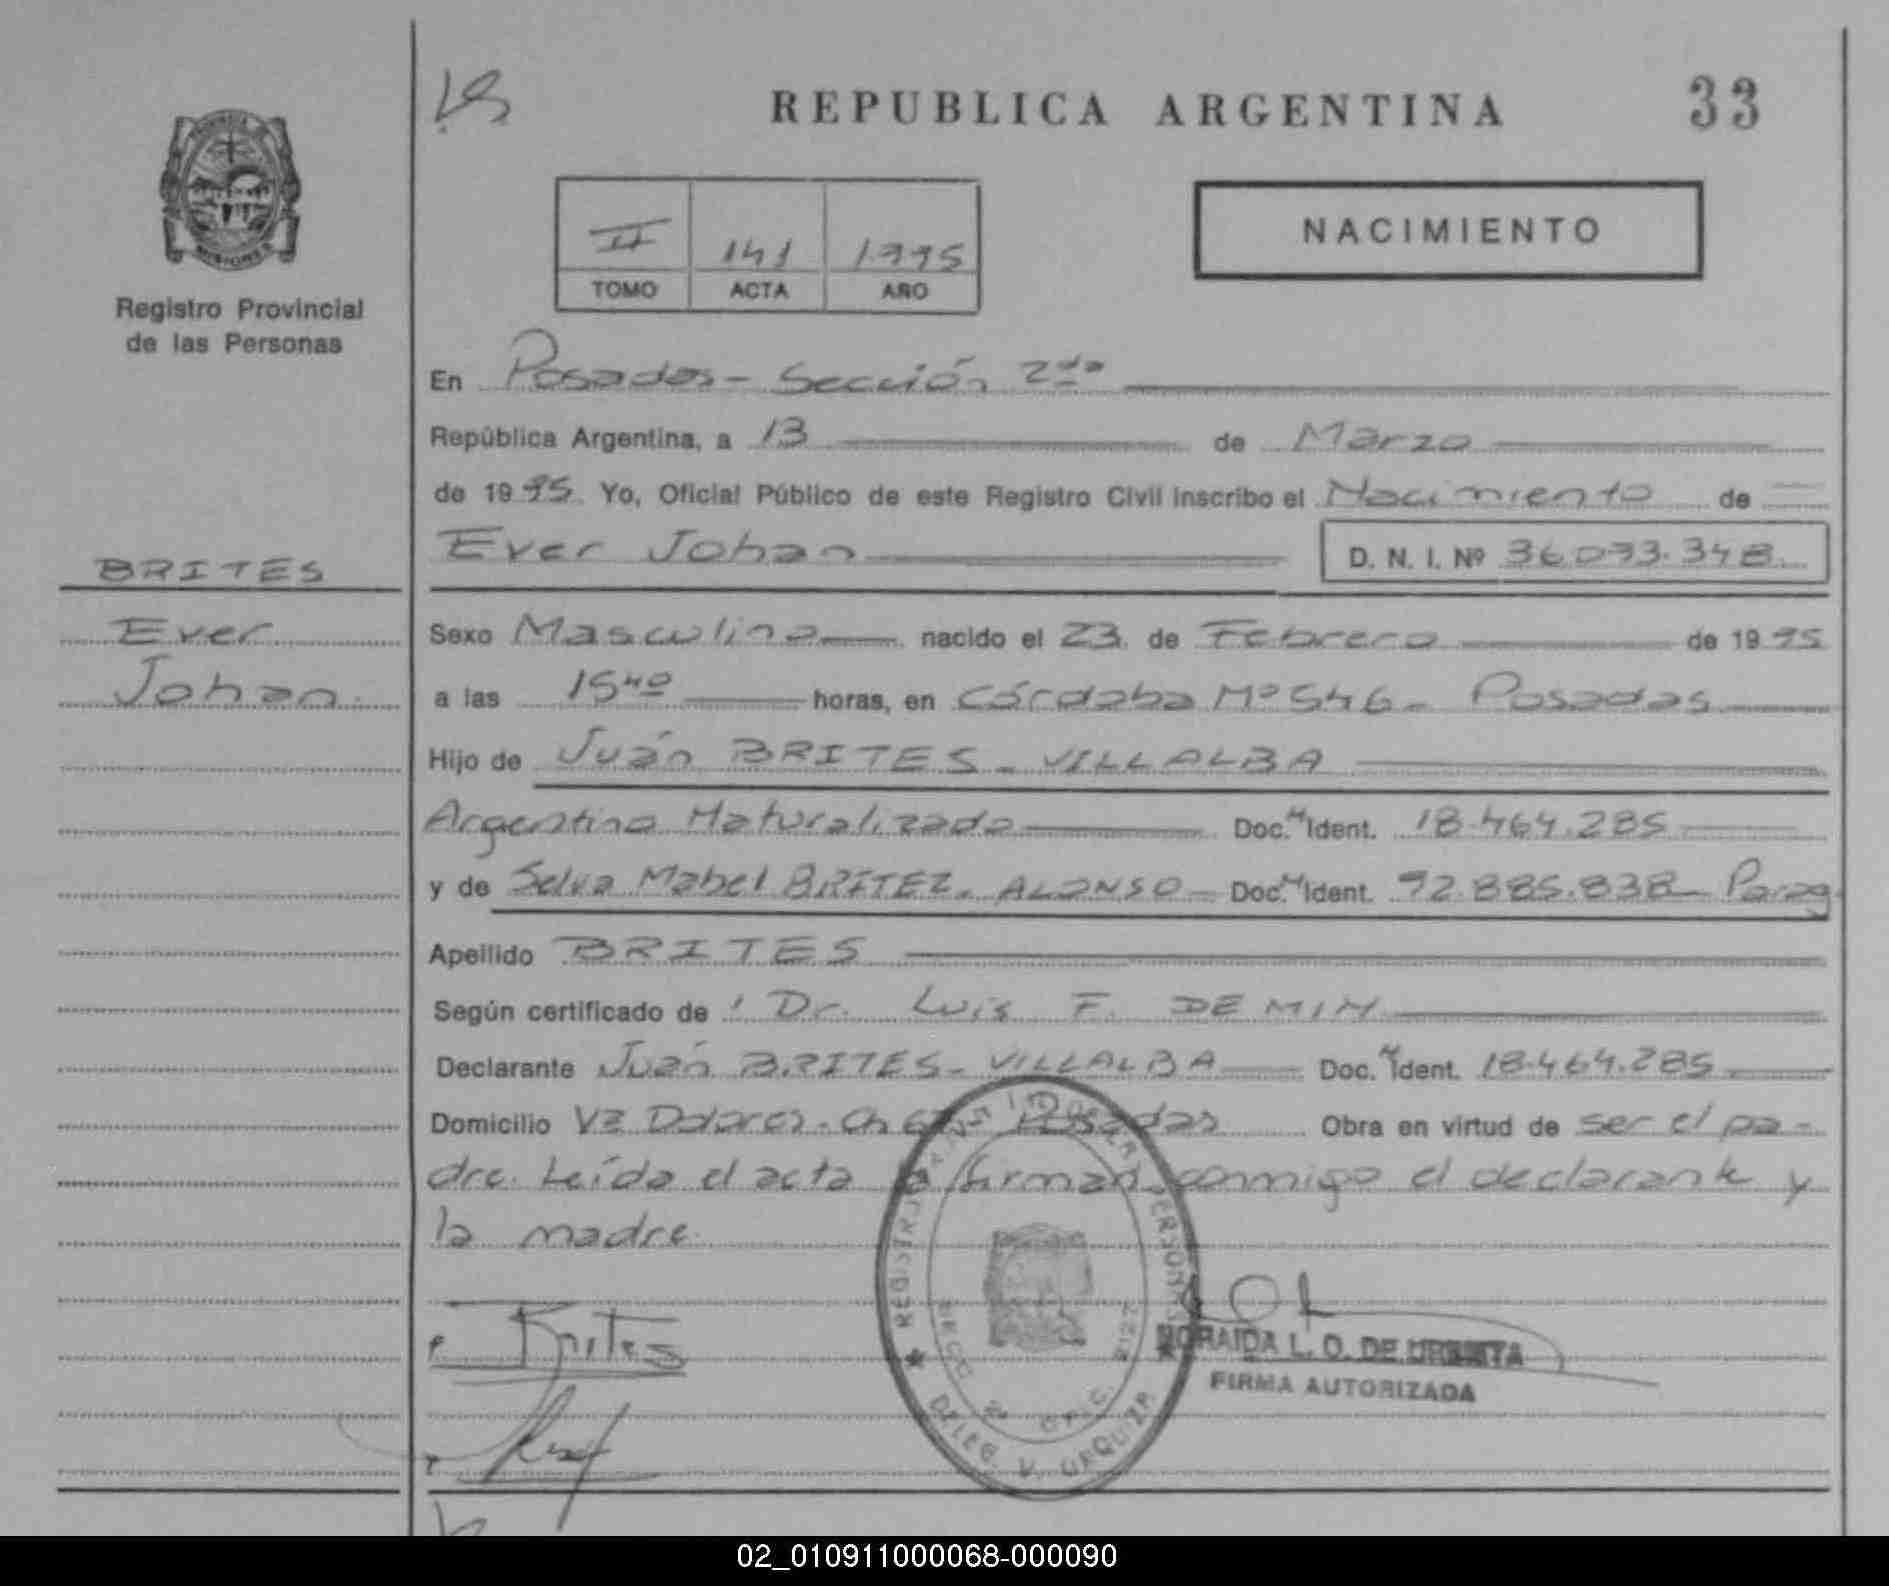 33
REPUBLICA ARGENTINA
MISIONES
Registro Provincial
de las Personas
NACIMIENTO
II 141 1995
TOMO ACTA AÑO
En Posadas - Sección 2da
República Argentina, a 13 de Marzo
de 1995 Yo, Oficial Público de este Registro Civil inscribo el Nacimiento de
Ever Johan D. N. I. Nº 36.093.348
BRITES
Ever
Johan.
Sexo Masculino nacido el 23 de Febrero de 1995
a las 15 40 horas, en Córdoba Nº 546 - Posadas
Hijo de Juán BRITES - VILLALBA
Argentino Naturalizado Doc. N Ident. 18.464.285
y de Selva Mabel BRITEZ - ALONSO - Doc. N Ident. 92.885.838 - Parag
Apellido BRITES
Según certificado de Dr. Luis F. DEMIN
Declarante Juán BRITES - VILLALBA Doc. N Ident. 18.464.285
Domicilio Vª Dolores - Ch Posadas Obra en virtud de ser el pa-
dre. Leída el acta la firman conmigo el declarante y
la madre.
Brites
NORAIDA L. O. DE
FIRMA AUTORIZADA
DELEG. V. URQUIZA
02_010911000068-000090